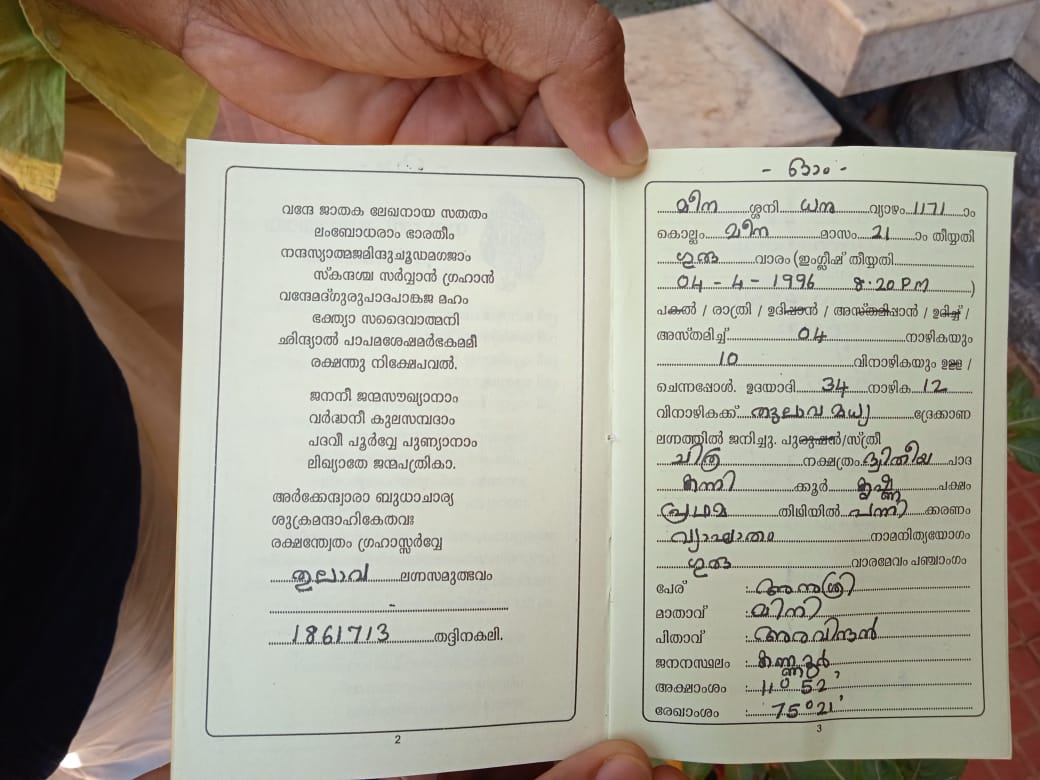 വന്ദേ ജാതക ലേഖനായ സതതം
ലംബോധരാം ഭാരതീം
നന്ദസ്യാത്മജമിന്ദുചൂഡമഗജാം
സ്കന്ദശ്ച സർവ്വാൻ ഗ്രഹാൻ
വന്ദേമദ്ഗുരുപാദപാങ്കജ മഹം
ഭക്ത്യാ സദൈവാത്മനി
ഛിന്ദ്യാൽ പാപമശേഷമർഭകമമീ
രക്ഷന്തു നിക്ഷേപവൽ.
ജനനീ ജന്മസൗഖ്യാനാം
വർദ്ധനീ കുലസമ്പദാം
പദവീ പൂർവ്വേ പുണ്യാനാം
ലിഖ്യാതേ ജന്മപത്രികാ.
അർക്കേന്ദ്വാരാ ബുധാചാര്യ
ശുക്രമന്ദാഹികേതവഃ
രക്ഷന്ത്വേതം ഗ്രഹാസ്സർവ്വേ
തുലാവ ലഗ്നസമുത്ഭവം
1861713 തദ്ദിനകലി.
2
- ഓം -
മീന ശ്ശനി ധനു വ്യാഴം 1171 ാം
കൊല്ലം മീന മാസം 21 ാം തീയ്യതി
ഗുരു വാരം (ഇംഗ്ലീഷ് തീയ്യതി
04 - 4 - 1996 8:20 PM )
പകൽ / രാത്രി / ഉദിപ്പാൻ / അസ്തമിപ്പാൻ / ഉദിച്ച് /
അസ്തമിച്ച് 04 നാഴികയും
10 വിനാഴികയും ഉള്ള /
ചെന്നപ്പോൾ. ഉദയാദി 34 നാഴിക 12
വിനാഴികക്ക് തുലാവ മധ്യ ദ്രേക്കാണ
ലഗ്നത്തിൽ ജനിച്ചു. പുരുഷൻ/സ്ത്രീ
ചിത്ര നക്ഷത്രം ദ്വിതീയ പാദ
കന്നി ക്കൂർ കൃഷ്ണ പക്ഷം
പ്രഥമ തിഥിയിൽ പന്നി ക്കരണം
വ്യാഘാത നാമനിത്യയോഗം
ഗുരു വാരമേവം പഞ്ചാംഗം
പേര് : അനുശ്രീ
മാതാവ് : മിനി
പിതാവ് : അരവിന്ദൻ
ജനനസ്ഥലം : കണ്ണൂർ
അക്ഷാംശം : 11° 52'
രേഖാംശം : 75° 21'
3